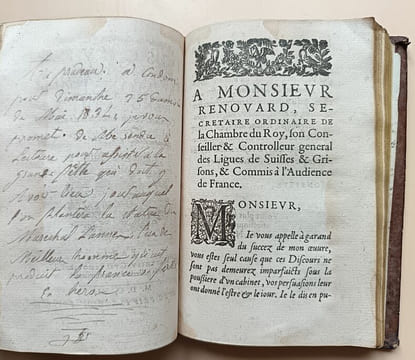 pour dimanche 25
de Mai 1834, je vous
promet de
Lectoure pour
grande fête qui doit y
avoir lieu, jour auquel
l'on plantera la statue du
Maréchal Lannes
meilleur homme qu'ait
produit la france
A MONSIEVR
RENOVARD, SE-
CRETAIRE ORDINAIRE DE
la Chambre du Roy, son Con-
seiller & Controlleur general
des Ligues de Suisses & Gri-
sons, & Commis à l'Audience
de France.
MONSIEVR,
Ie vous appelle à garand
du succez de mon œuvre,
vous estes seul cause que ces Discours ne
sont pas demeurez imparfaicts sous la
poussiere d'vn cabinet, vos persuasions leur
ont donné l'estre & le iour. Ie le dis en pu-